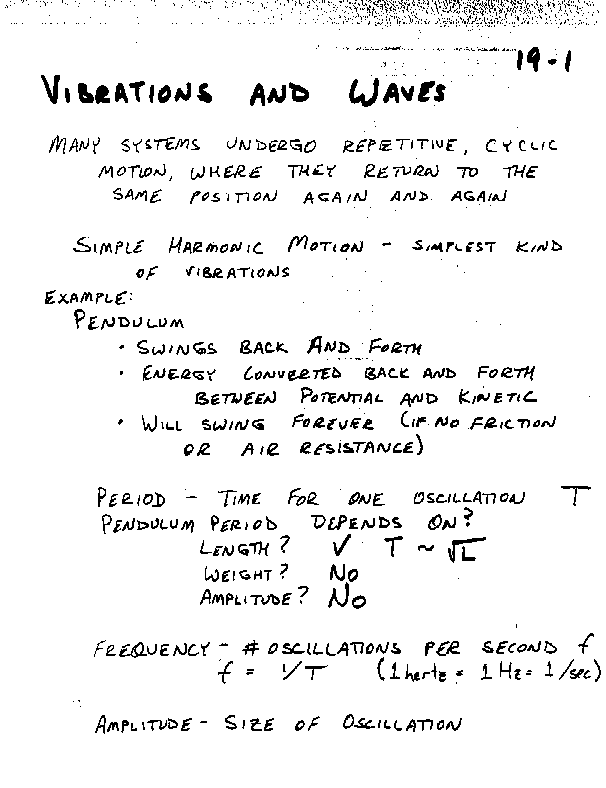 19-1
VIBRATIONS AND WAVES
MANY SYSTEMS UNDERGO REPETITIVE, CYCLIC
MOTION, WHERE THEY RETURN TO THE
SAME POSITION AGAIN AND AGAIN
SIMPLE HARMONIC MOTION - SIMPLEST KIND
OF VIBRATIONS
EXAMPLE:
PENDULUM
• SWINGS BACK AND FORTH
• ENERGY CONVERTED BACK AND FORTH
BETWEEN POTENTIAL AND KINETIC
• WILL SWING FOREVER (IF NO FRICTION
OR AIR RESISTANCE)
PERIOD - TIME FOR ONE OSCILLATION T
PENDULUM PERIOD DEPENDS ON?
LENGTH? ✓ T ~ √L
WEIGHT? NO
AMPLITUDE? NO
FREQUENCY - # OSCILLATIONS PER SECOND f
f = 1/T (1 hertz = 1 Hz = 1/sec)
AMPLITUDE - SIZE OF OSCILLATION